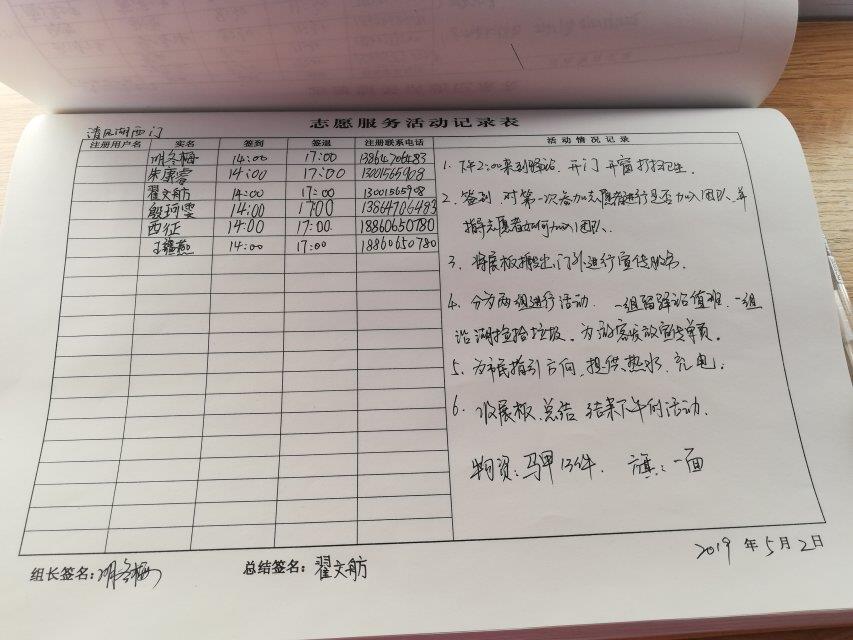 志愿服务活动记录表
清风湖西门
注册用户名 实名 签到 签退 注册联系电话 活动情况记录
明冬梅 14:00 17:00 13864706483
朱康寧 14:00 17:00 13001565908
翟文舫 14:00 17:00 13001565908
殷珂雯 14:00 17:00 13864706483
西征 14:00 17:00 18860650780
14:00 17:00 18860650780
1. 下午2:00来到驿站，开门 开窗 打扫卫生.
2. 签到，对第一次参加志愿者进行是否加入团队，并
指导志愿者如何加入团队.
3. 将展板搬出门外进行宣传服务.
4. 分为两组进行活动. 一组留驿站值班，一组
沿湖捡拾垃圾，为游客发放宣传单页。
5. 为市民指引方向、提供热水、充电.
6. 收展板 总结 结束下午的活动.
物资：马甲13件. 旗：一面
组长签名：明冬梅 总结签名：翟文舫
2019 年 5 月 2 日